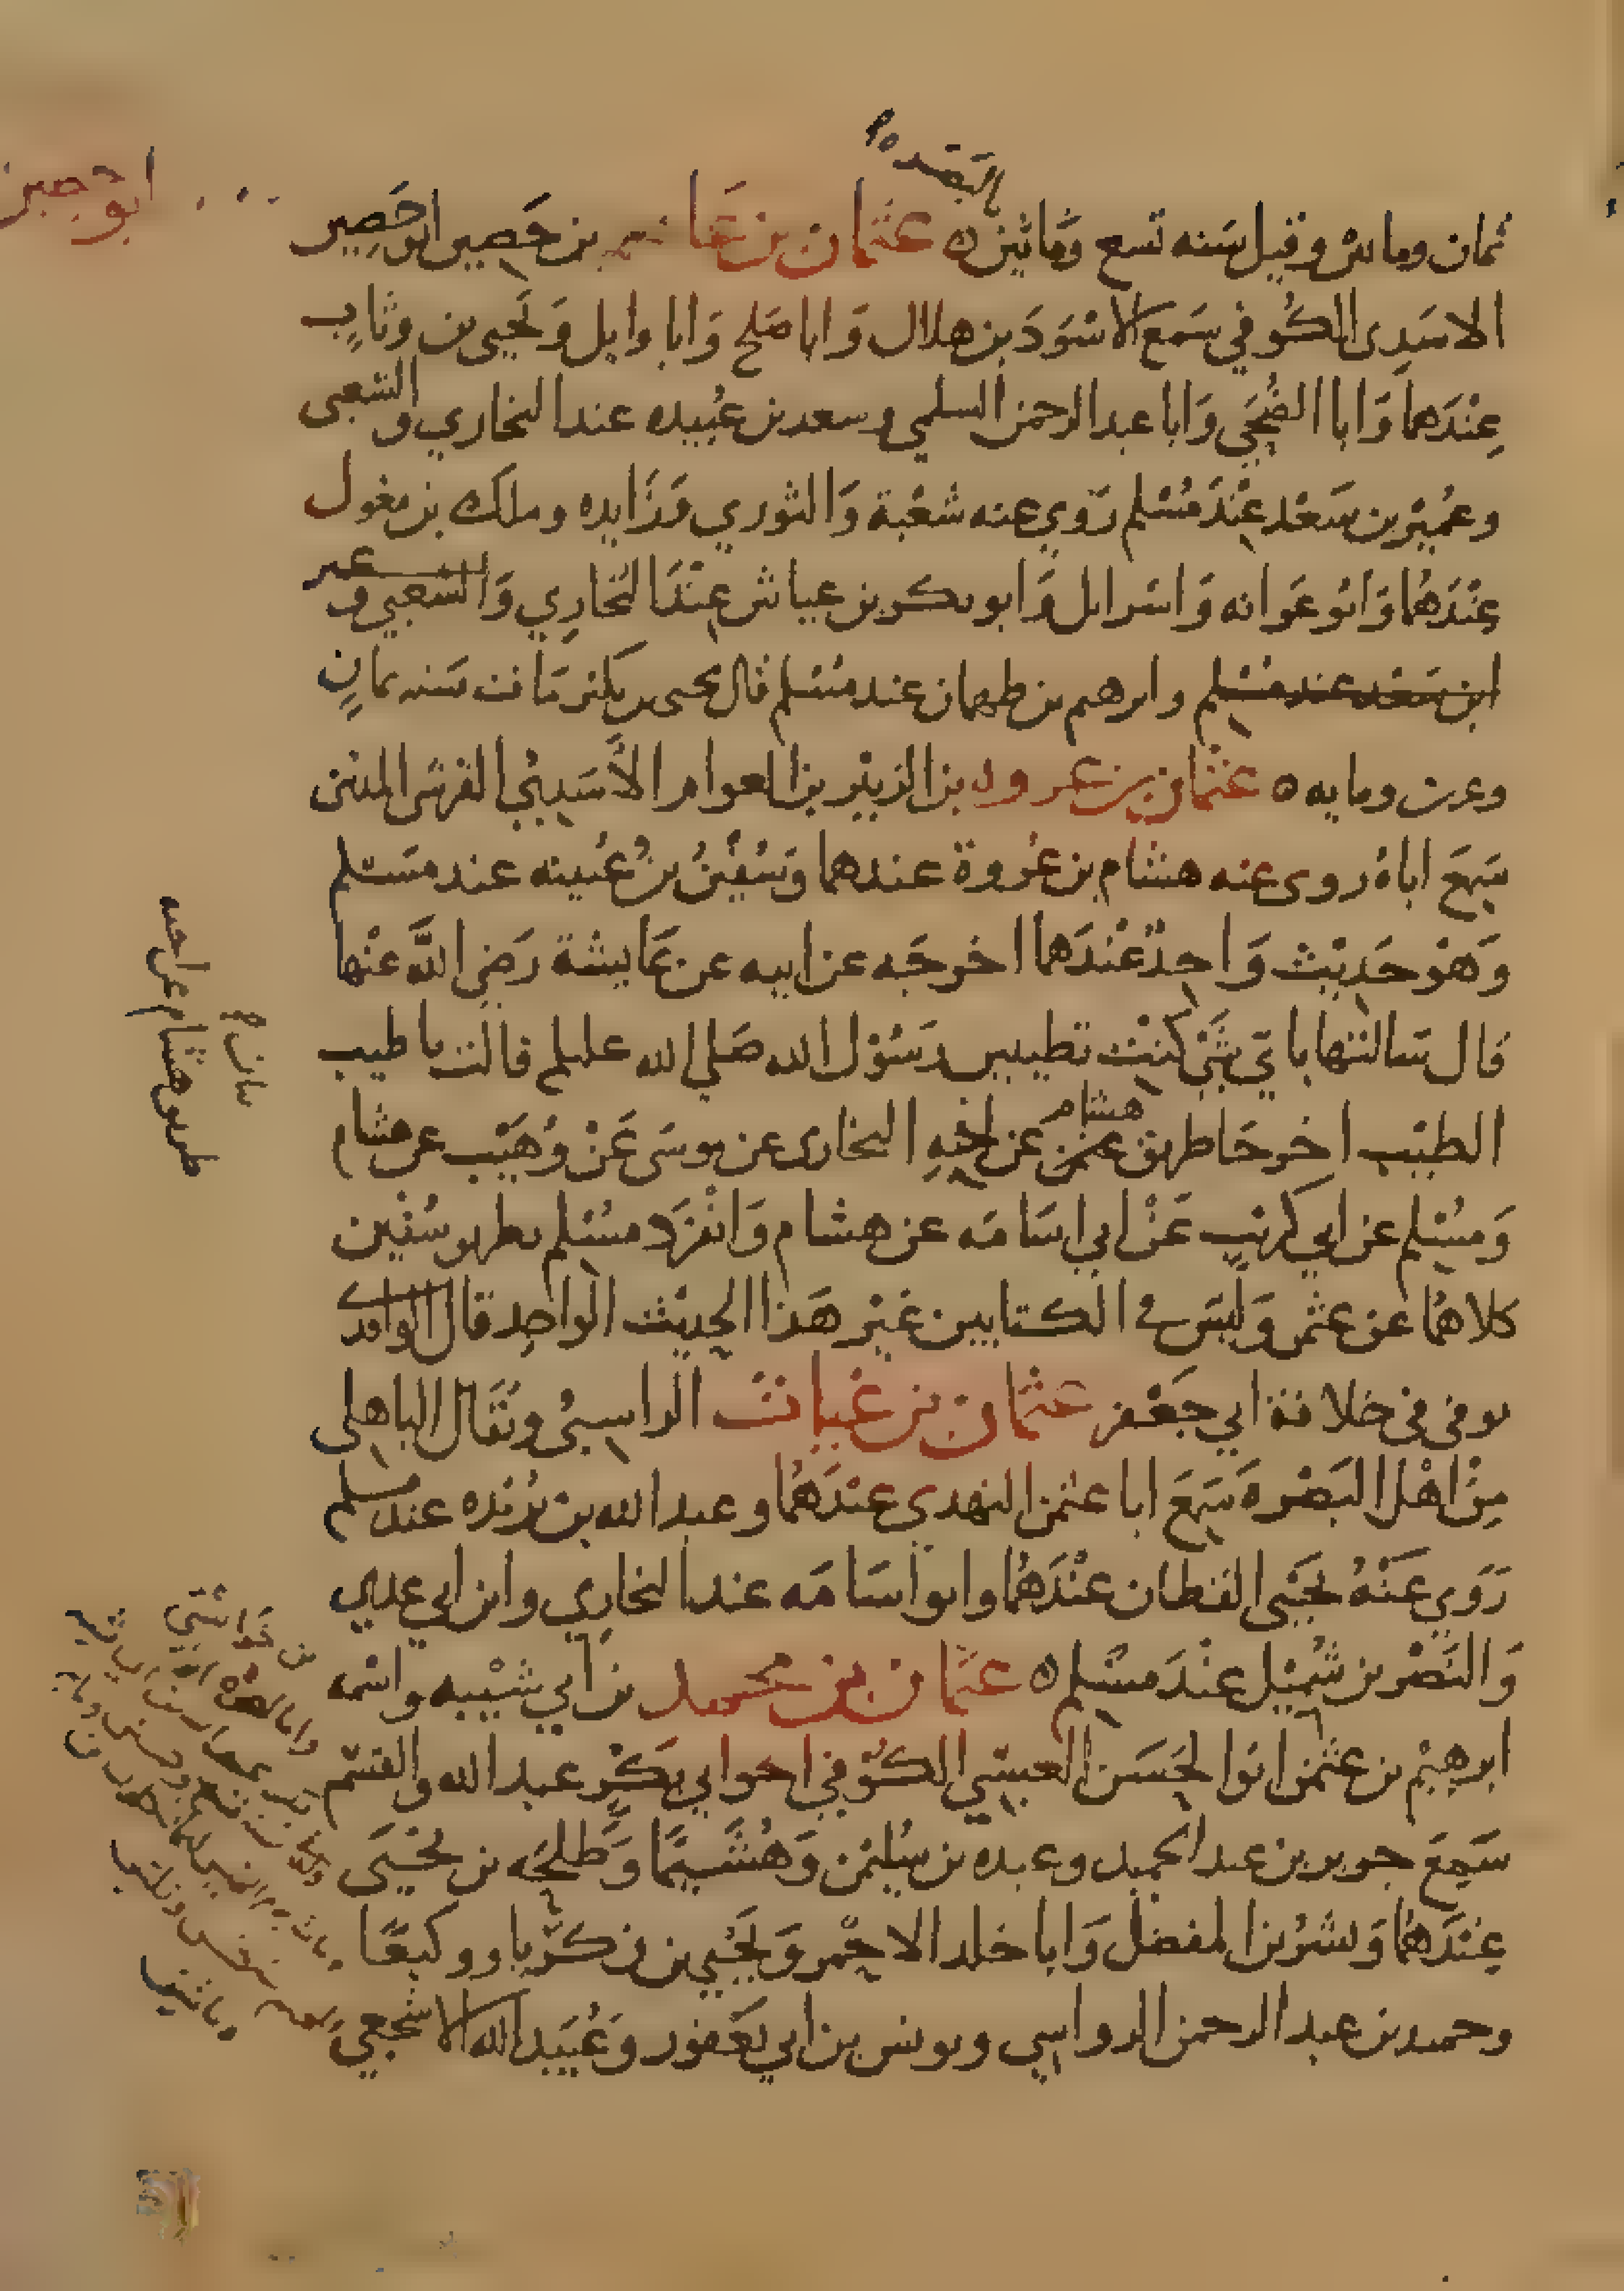 البصره
ابو حصين
ثمان ومائتين وقيل سنه تسع ومائتين ه عثمان بن عاصم بن حصين ابو حصين
الاسدى الكوفي سمع الاسود بن هلال وابا صلح وابا وايل ويحيى بن وثاب
عندهما وابا الضحى وابا عبد الرحمن السلمي وسعد بن عبيده عند البخاري والشعبى
وعمير بن سعد عند مسلم روي عنه شعبة والثوري وزايده وملك بن مغول
عندهما وابو عوانه واسرايل وابو بكر بن عياش عند البخاري والشعبي وعمير
ابن سعد عند مسلم وابرهيم بن طهمان عند مسلم قال يحيى بن بكير مات سنه ثمان
وعشرين ومايه ه عثمان بن عروه بن الزبير بن العوام الاسدي القرشى المدنى
سمع اباه روى عنه هشام بن عروة عندهما وسفين بن عيينه عند مسلم
وهو حديث واحد عندهما اخرجه عن ابيه عن عايشة رضي الله عنها
قال سالتها باي شي كنت تطيبين رسول الله صلي الله عليه وسلم قالت باطيب
الطيب اخرجا طريق هشام عن اخيه البخارى عن موسى عن وهيب عن هشام
ومسلم عن ابي كريب عن ابي اسامه عن هشام وانفرد مسلم بطريق سفين
كلاهما عن عثمن وليس في الكتابين غير هذا الحديث الواحد قال الواقدي
توفي في خلافة ابي جعفر عثمان بن غياث الراسبي ويقال الباهلى
من اهل البصره سمع ابا عثمن النهدي عندهما وعبد الله بن بريده عند مسلم
روي عنه يحيى القطان عندهما وابو اسامه عند البخاري وابن ابي عدي
والنضر بن شميل عند مسلم ه عثمان بن محمد بن ابي شيبه واسمه
ابرهيم بن عثمن ابو الحسن العبسي الكوفي اخو ابي بكر عبد الله والقسم
سمع جرير بن عبد الحميد وعبده بن سليمن وهشيما وطلحه بن يحيى
عندهما وبشر بن المفضل وابا خلد الاحمر ويحيى بن زكريا ووكيعا
وحميد بن عبد الرحمن الرواسي ويونس بن ابي يعفور وعبيد الله الاشجعي